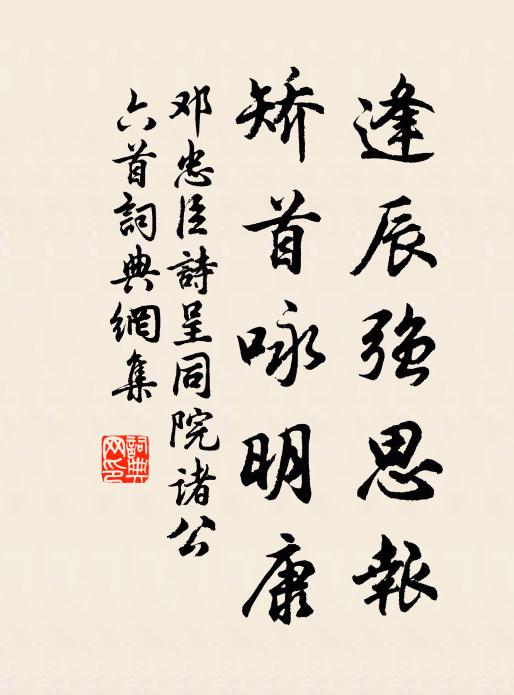 逢辰强思報
矯首咏明康
邓忠臣詩呈同院诸公
六首詞典網集
詞典
网印